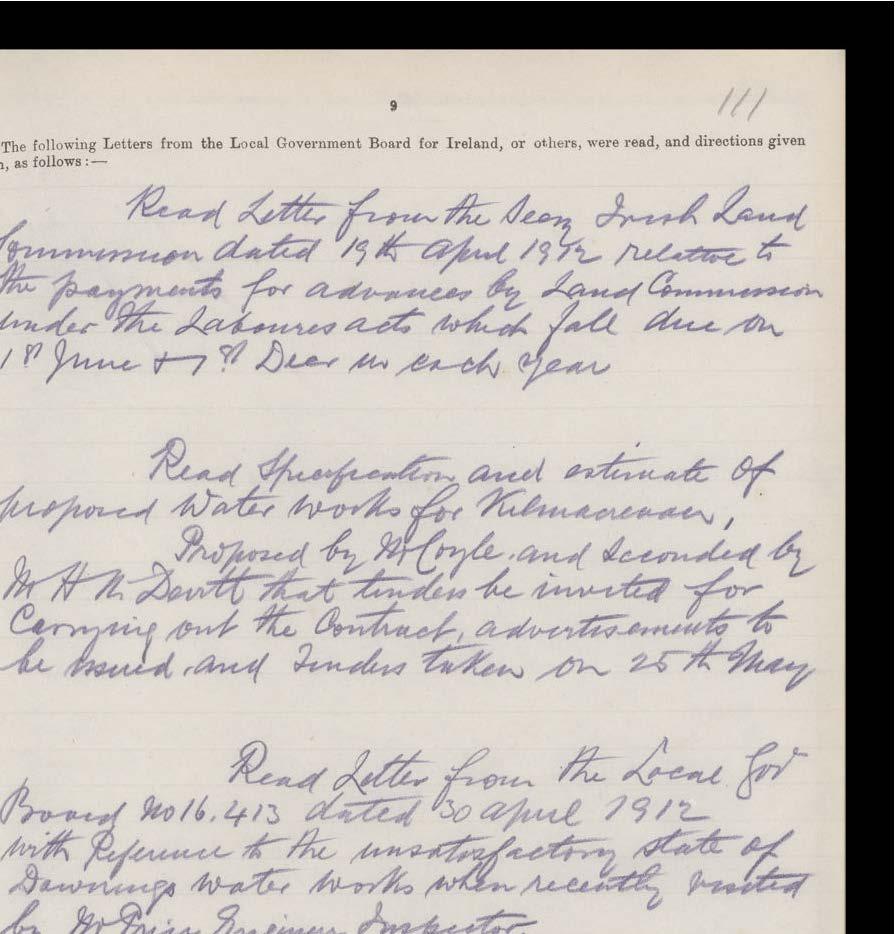 9
111
The following Letters from the Local Government Board for Ireland, or others, were read, and directions given
, as follows :—
Read Letter from the Secy Irish Land
Commission dated 19th April 1912 relative to
the payments for advances by Land Commission
under the Laboures acts which fall due on
1st June & 1st Decr in each year
Read Specification and estimate of
proposed Water works for Kilmacrenan,
Proposed by Mr Coyle and Seconded by
Mr H McDevitt that tenders be invited for
Carrying out the Contract, advertisements to
be issued and Tenders taken on 25th May
Read Letter from the Local Gov
Board No 16.413 dated 30 April 1912
with Reference to the unsatisfactory state of
Downings water works when recently visited
by Mr Engineer Inspector.